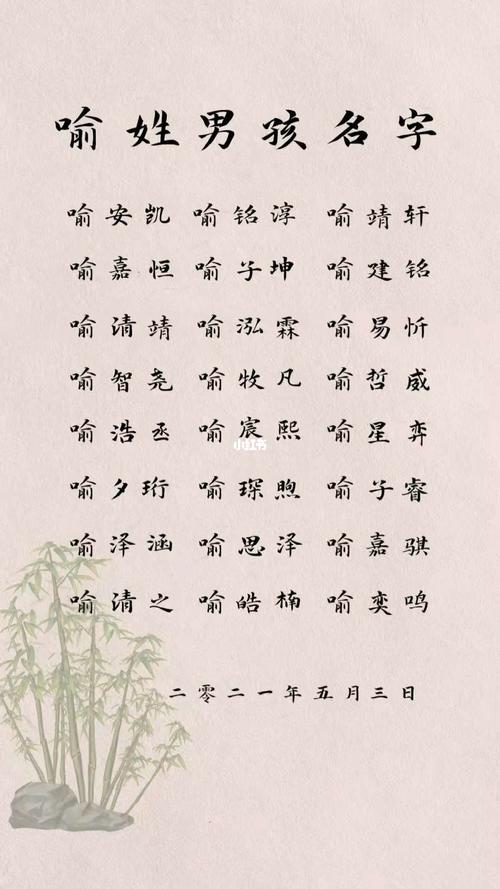 喻姓男孩名字
喻安凯 喻铭淳 喻靖轩
喻嘉恒 喻子坤 喻建铭
喻清靖 喻泓霖 喻易忻
喻智尧 喻牧凡 喻哲威
喻浩丞 喻宸熙 喻星弈
小红书
喻夕珩 喻琛煦 喻子睿
喻泽涵 喻思泽 喻嘉骐
喻清之 喻皓楠 喻奕鸣
二零二一年五月三日